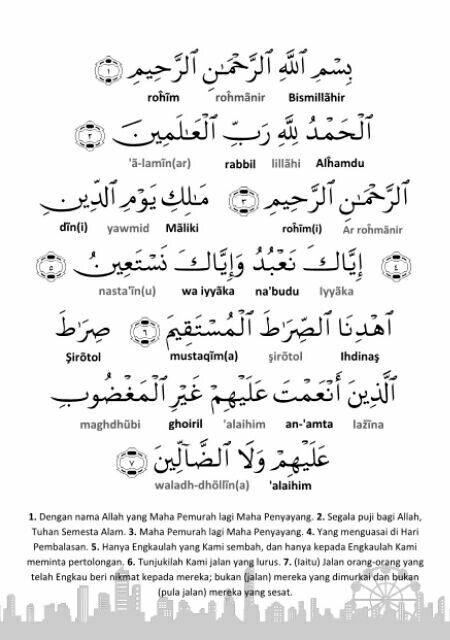 بِسْمِ ٱللَّهِ ٱلرَّحْمَـٰنِ ٱلرَّحِيمِ ١
roĥĩm roĥmãnir Bismillãhir
ٱلْحَمْدُ لِلَّهِ رَبِّ ٱلْعَـٰلَمِينَ ٢
'ã-lamĩn(ar) rabbil lillãhi Alĥamdu
ٱلرَّحْمَـٰنِ ٱلرَّحِيمِ ٣ مَـٰلِكِ يَوْمِ ٱلدِّينِ
dĩn(i) yawmid Mãliki roĥĩm(i) Ar roĥmãnir
٤ إِيَّاكَ نَعْبُدُ وَإِيَّاكَ نَسْتَعِينُ ٥
nasta'ĩn(u) wa iyyãka na'budu Iyyãka
ٱهْدِنَا ٱلصِّرَٰطَ ٱلْمُسْتَقِيمَ ٦ صِرَٰطَ
Şirõtol mustaqĩm(a) şirõtol Ihdinaş
ٱلَّذِينَ أَنْعَمْتَ عَلَيْهِمْ غَيْرِ ٱلْمَغْضُوبِ
maghdhũbi ghoiril 'alaihim an-'amta lažĩna
عَلَيْهِمْ وَلَا ٱلضَّآلِّينَ ٧
waladh-dhõllĩn(a) 'alaihim
1. Dengan nama Allah yang Maha Pemurah lagi Maha Penyayang. 2. Segala puji bagi Allah,
Tuhan Semesta Alam. 3. Maha Pemurah lagi Maha Penyayang. 4. Yang menguasai di Hari
Pembalasan. 5. Hanya Engkaulah yang Kami sembah, dan hanya kepada Engkaulah Kami
meminta pertolongan. 6. Tunjukilah Kami jalan yang lurus. 7. (Iaitu) Jalan orang-orang yang
telah Engkau beri nikmat kepada mereka; bukan (jalan) mereka yang dimurkai dan bukan
(pula jalan) mereka yang sesat.